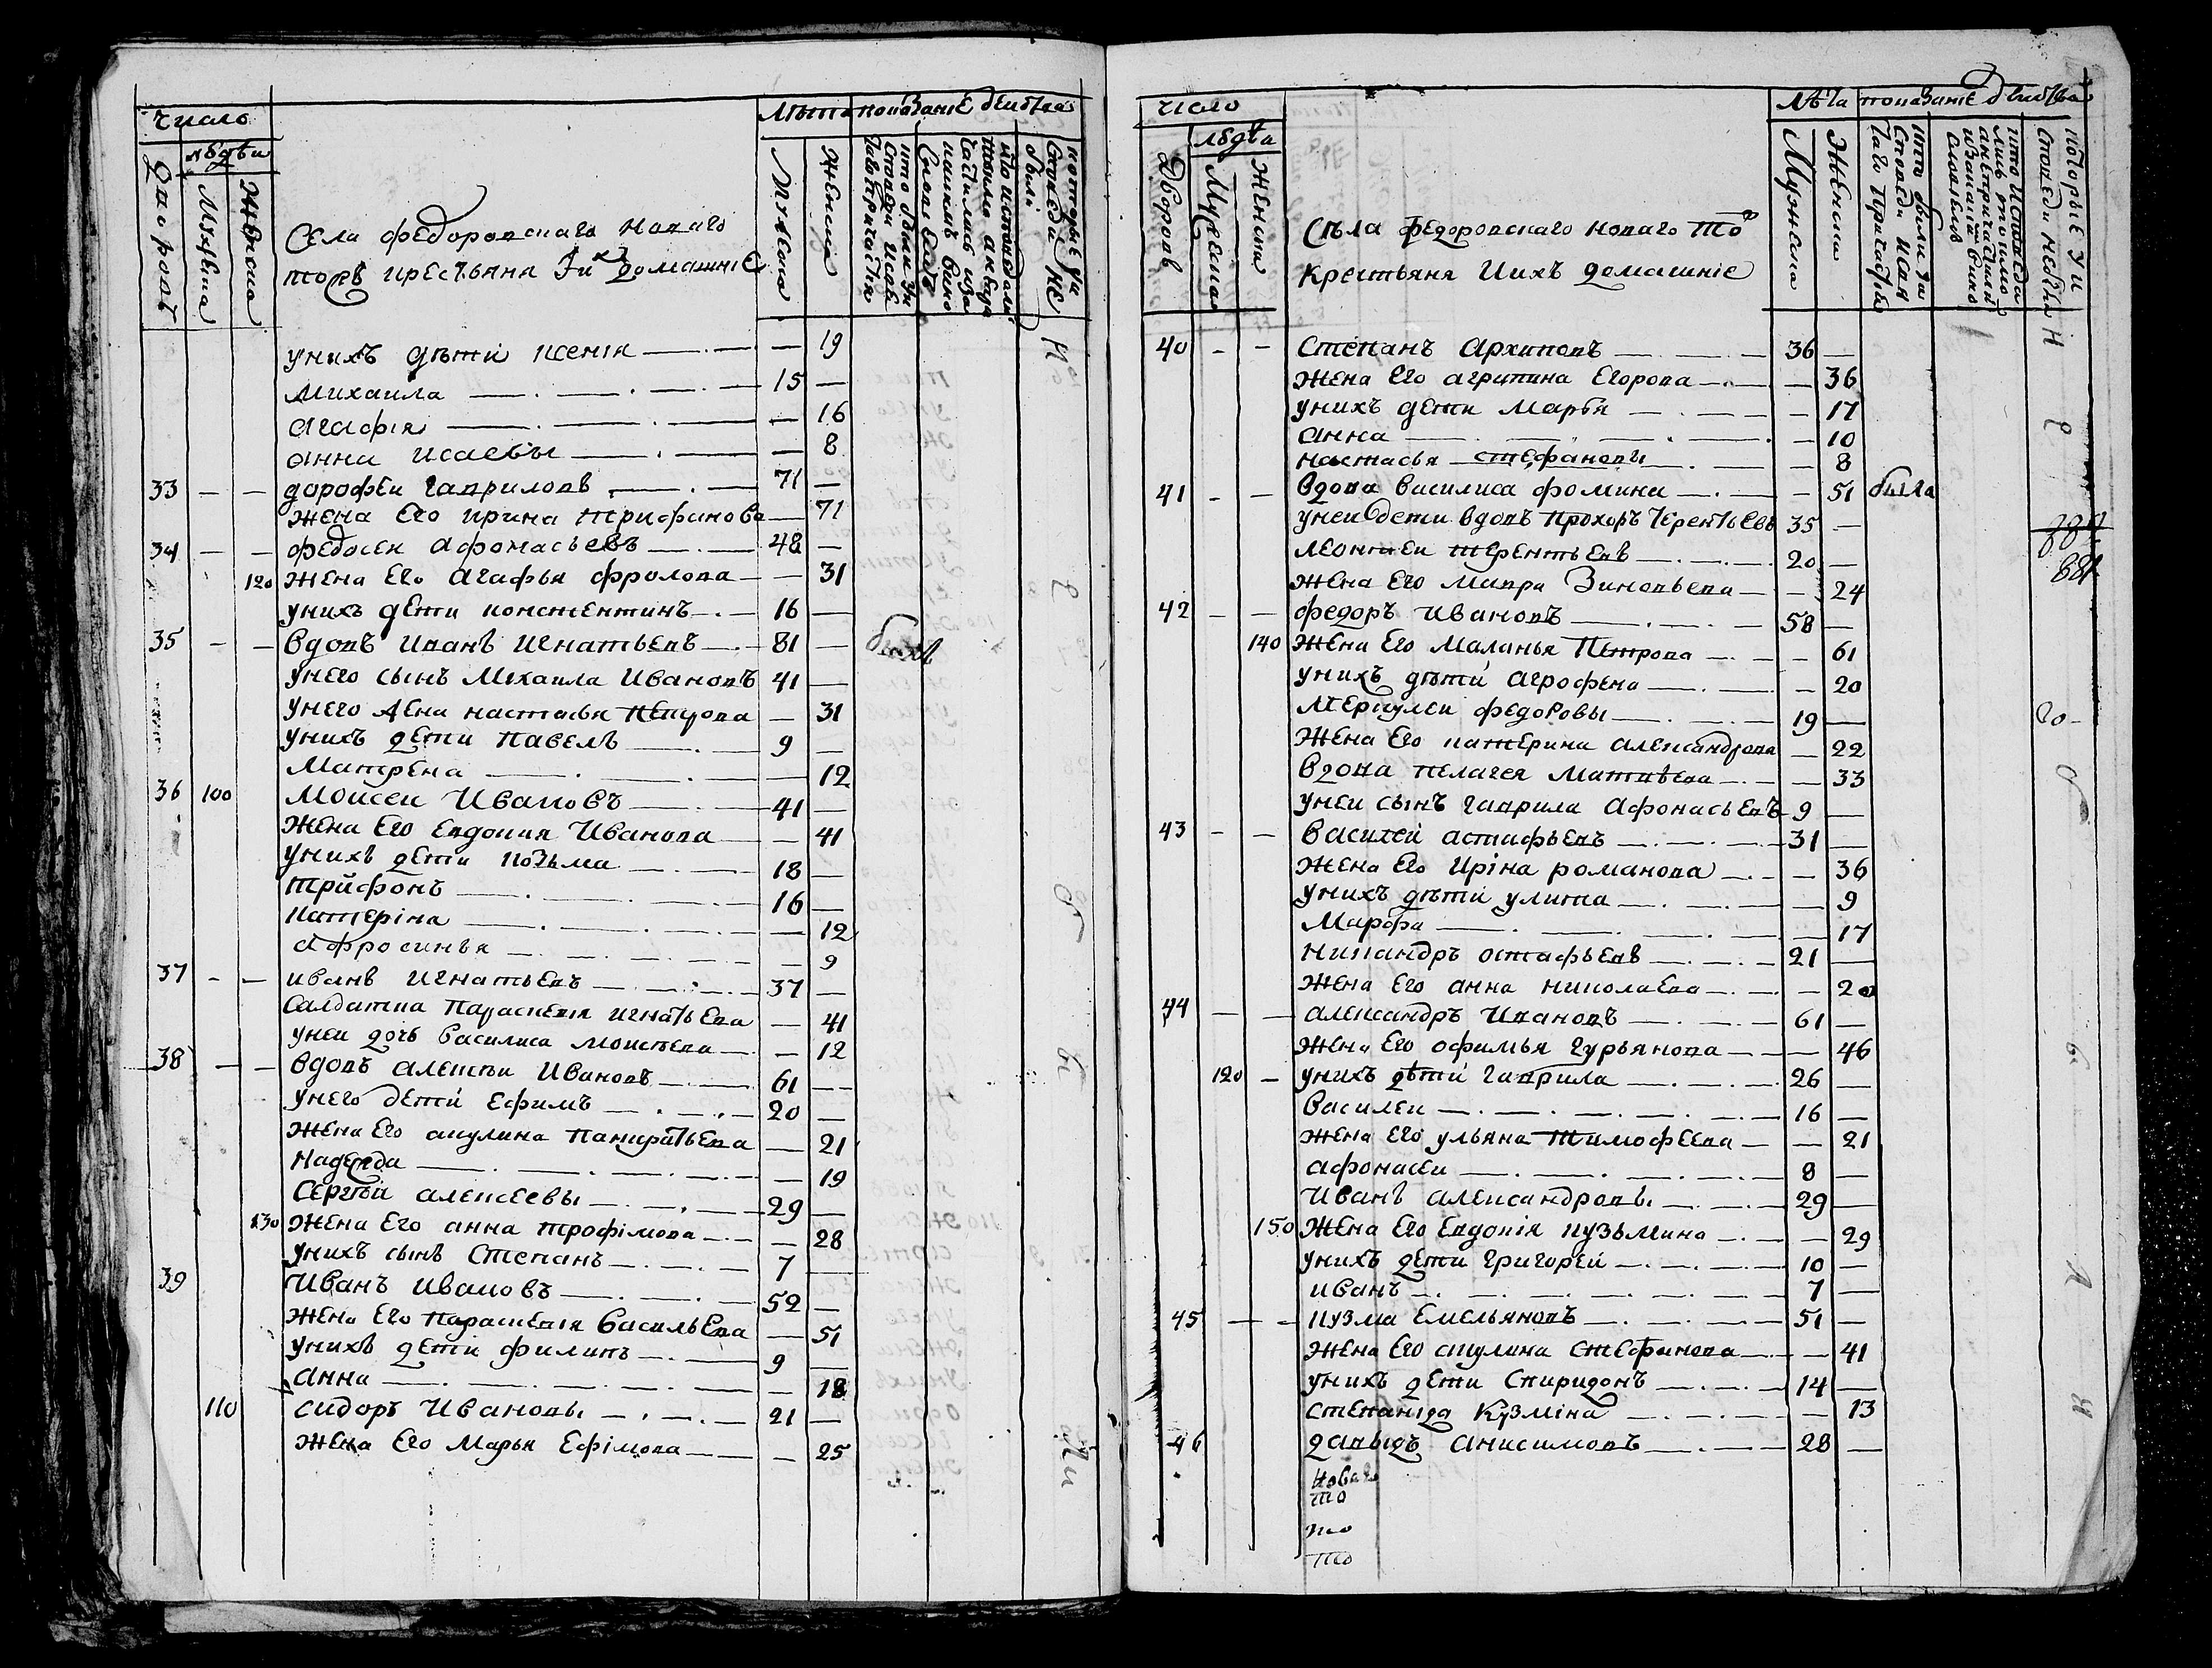 Число
людѣи
Дворовъ
Мужеска
Женска
Села федоровскаго новаго
тожъ крестьяна Ихъ домашнiе
Лѣта
показанiе действа
Мужеска
Женска
унихъ дѣти ксенiя — 19
Михаила — 15 —
агафiя — 16
анна исаевы — 8
33 — — дорофеи гавриловъ — 71 —
жена Его ирина трифанова — 71
34 — — федосеи афонасьевъ — 48 —
120 жена Его агафья фролова — — 31
унихъ дЕти констентинъ — 16 —
35 — — вдовъ иванъ игнатьевъ — 81 — былъ
унего сынъ Михаила Ивановъ 41 —
унего жена настасья петрова — 31
унихъ дети павелъ — 9 —
Матрена — — 12
36 100 Моисеи Ивановъ — 41 —
Жена Его евдокия Иванова — — 41
унихъ дети козьма — 18 —
трифонъ — 16 —
катерiна — — 12
афросинья — — 9
37 - — иванъ игнатьевъ — 37 —
салдатка параскевiя игнатьева — 41
унеи дочь василиса моисеева — — 12
38 — — вдовъ алексѣи Ивановъ — 61 —
унего дети ефимъ — 20 —
жена Его акулина панкратьева — 21
надежда — — 19
сергѣй алексеевы — 29 —
130 жена Его анна трофiмова — — 28
унихъ сынъ степанъ — 7 —
39 Иванъ ивановъ — 52 —
жена Его параскевiя васильева — 51
унихъ дети филипъ — 9 —
анна — — 18
110 сидоръ Ивановы — 21 —
жена Его Марья Ефiмова — — 25
Не
бы
ли
число
людѣи
Дворовъ
Мужеска
Женска
Села федоровскаго новаго то
крестьяня Иихъ домашнiе
Лѣта
показанiе действа
Мужеска
Женска
40 - - степанъ архиповъ — 36 —
жена его агрипина Егорова — — 36
унихъ дети Марья — — 17
анна — — 10
настасья стефановы — — 8
41 - — вдова василиса фомина — — 51 была
унеи дети вдовъ прохоръ терентьевъ 35 —
леонтеи терентьевъ — 20 —
жена его мавра Зиновьева — — 24
42 — — федоръ ивановъ — 58 —
140 жена Его маланья Петрова — — 61
унихъ дѣти агрофена — — 20
меркулеи федоровы — 19 —
жена Его катерина александрова — 22
вдова пелагея матвѣева — — 33
унеи сынъ гаврила афонасьевъ 9 —
43 - — василеи астафьевъ — 31 —
жена Его Ирiна романова — — 36
унихъ дѣти улита — — 9
Марфа — — 17
никандръ остафьевъ — 21 —
жена Его анна николаева — — 20
44 — — александръ Ивановъ — 61 —
жена Его офимья гурьянова — — 46
120 — унихъ дѣти гаврила — 26 —
василеи — 16 —
жена Его ульяна тимофеева — — 21
афонасеи — 8 —
иванъ александровы — 29 —
150 жена Его евдокiя кузьмина — — 29
унихъ дети григореи — 10 —
иванъ — 7 —
45 — - кузма Емельяновъ — 51 —
жена Его акулина стефанова — — 41
унихъ дети спиридонъ — 14 —
степанида кузмiна — — 13
46 давыдъ анисимовъ — 28 —
новаго
то
то
то